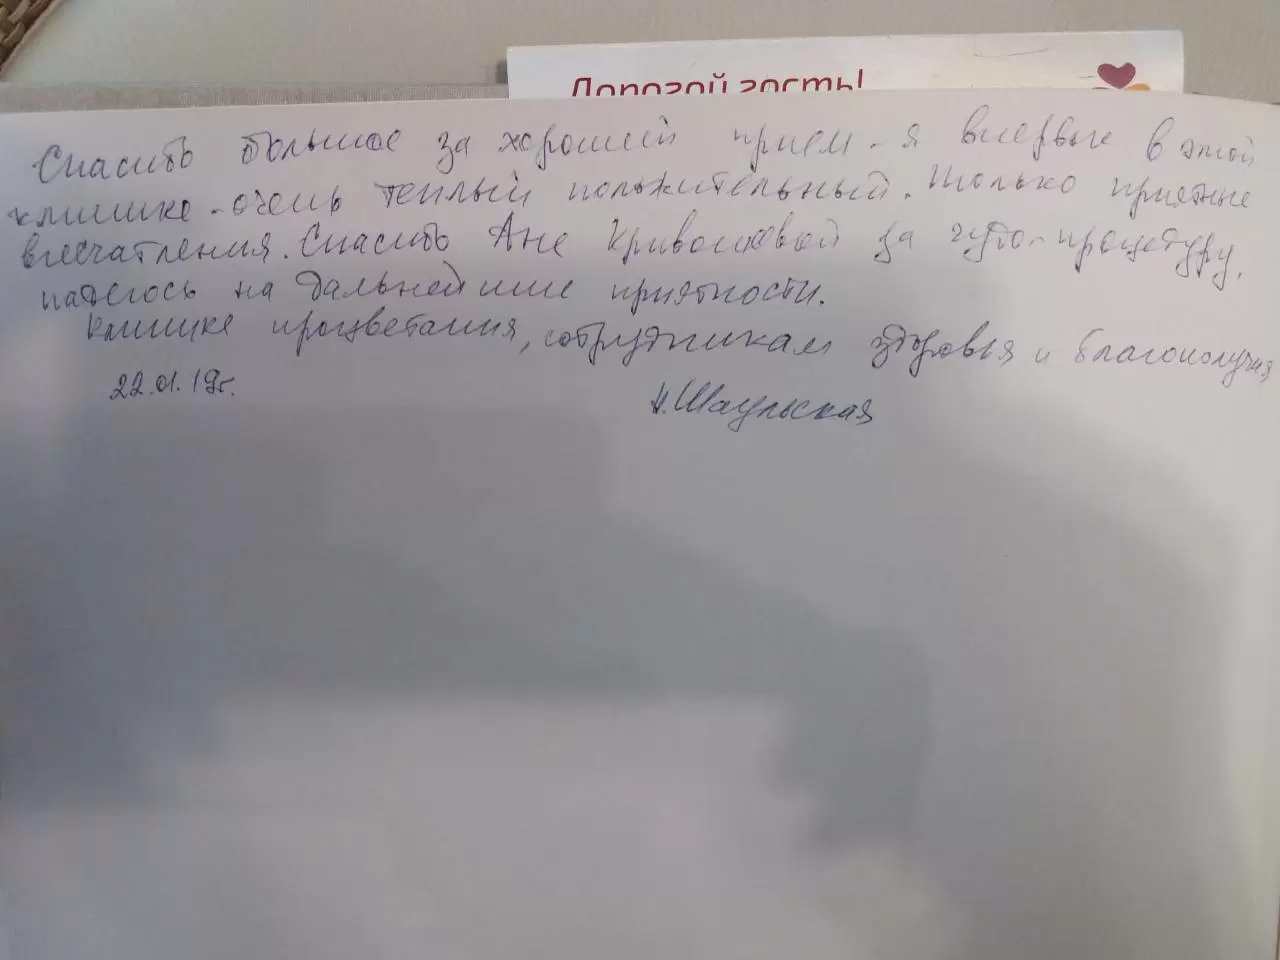 Дорогой гость!
Спасибо большое за хороший прием - я впервые в этой
клинике - очень теплый положительный. Только приятные
впечатления. Спасибо Ане за чудо-процедуру,
надеюсь на дальнейшие приятности.
Клинике процветания, сотрудникам здоровья и благополучия
22.01.19г.
Н. Шаульская